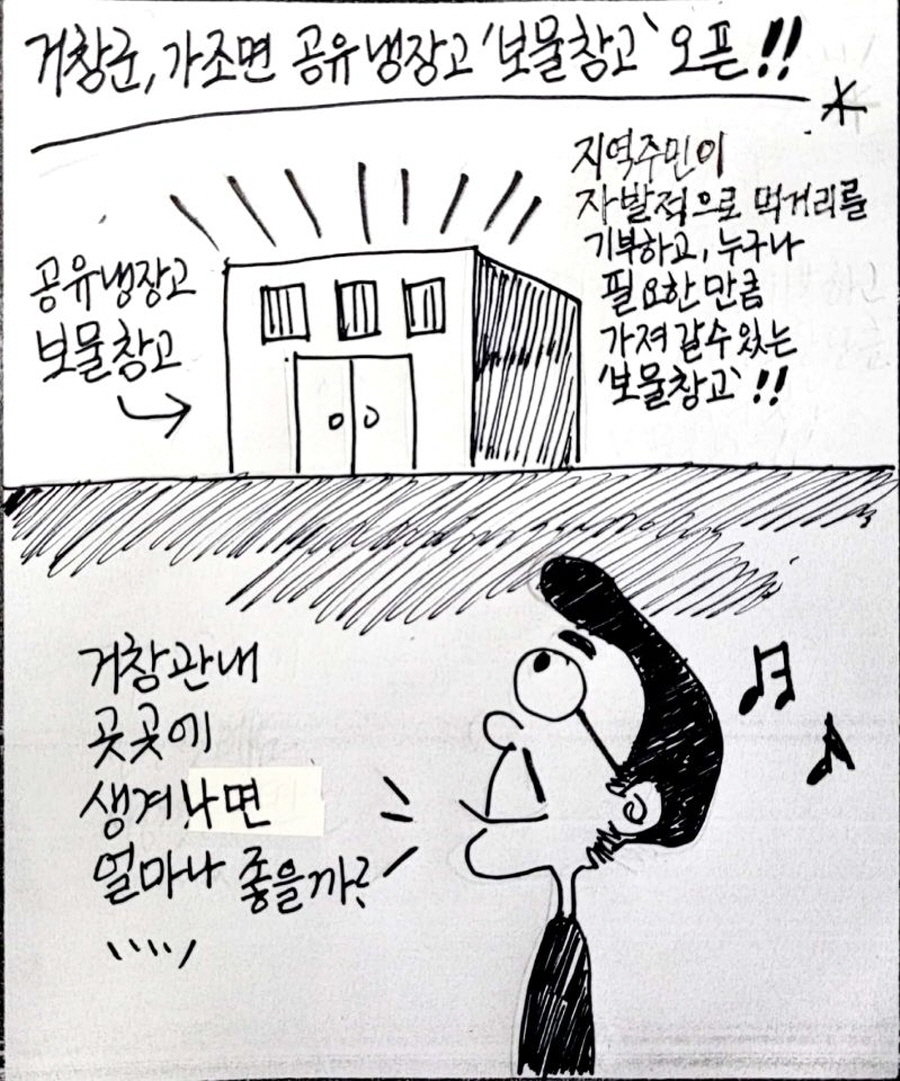 거창군, 가조면 공유냉장고 '보물창고' 오픈!!
공유냉장고
보물창고
지역주민이
자발적으로 먹거리를
기부하고, 누구나
필요한 만큼
가져 갈 수 있는
'보물창고' !!
거창관내
곳곳에
생겨나면
얼마나 좋을까?